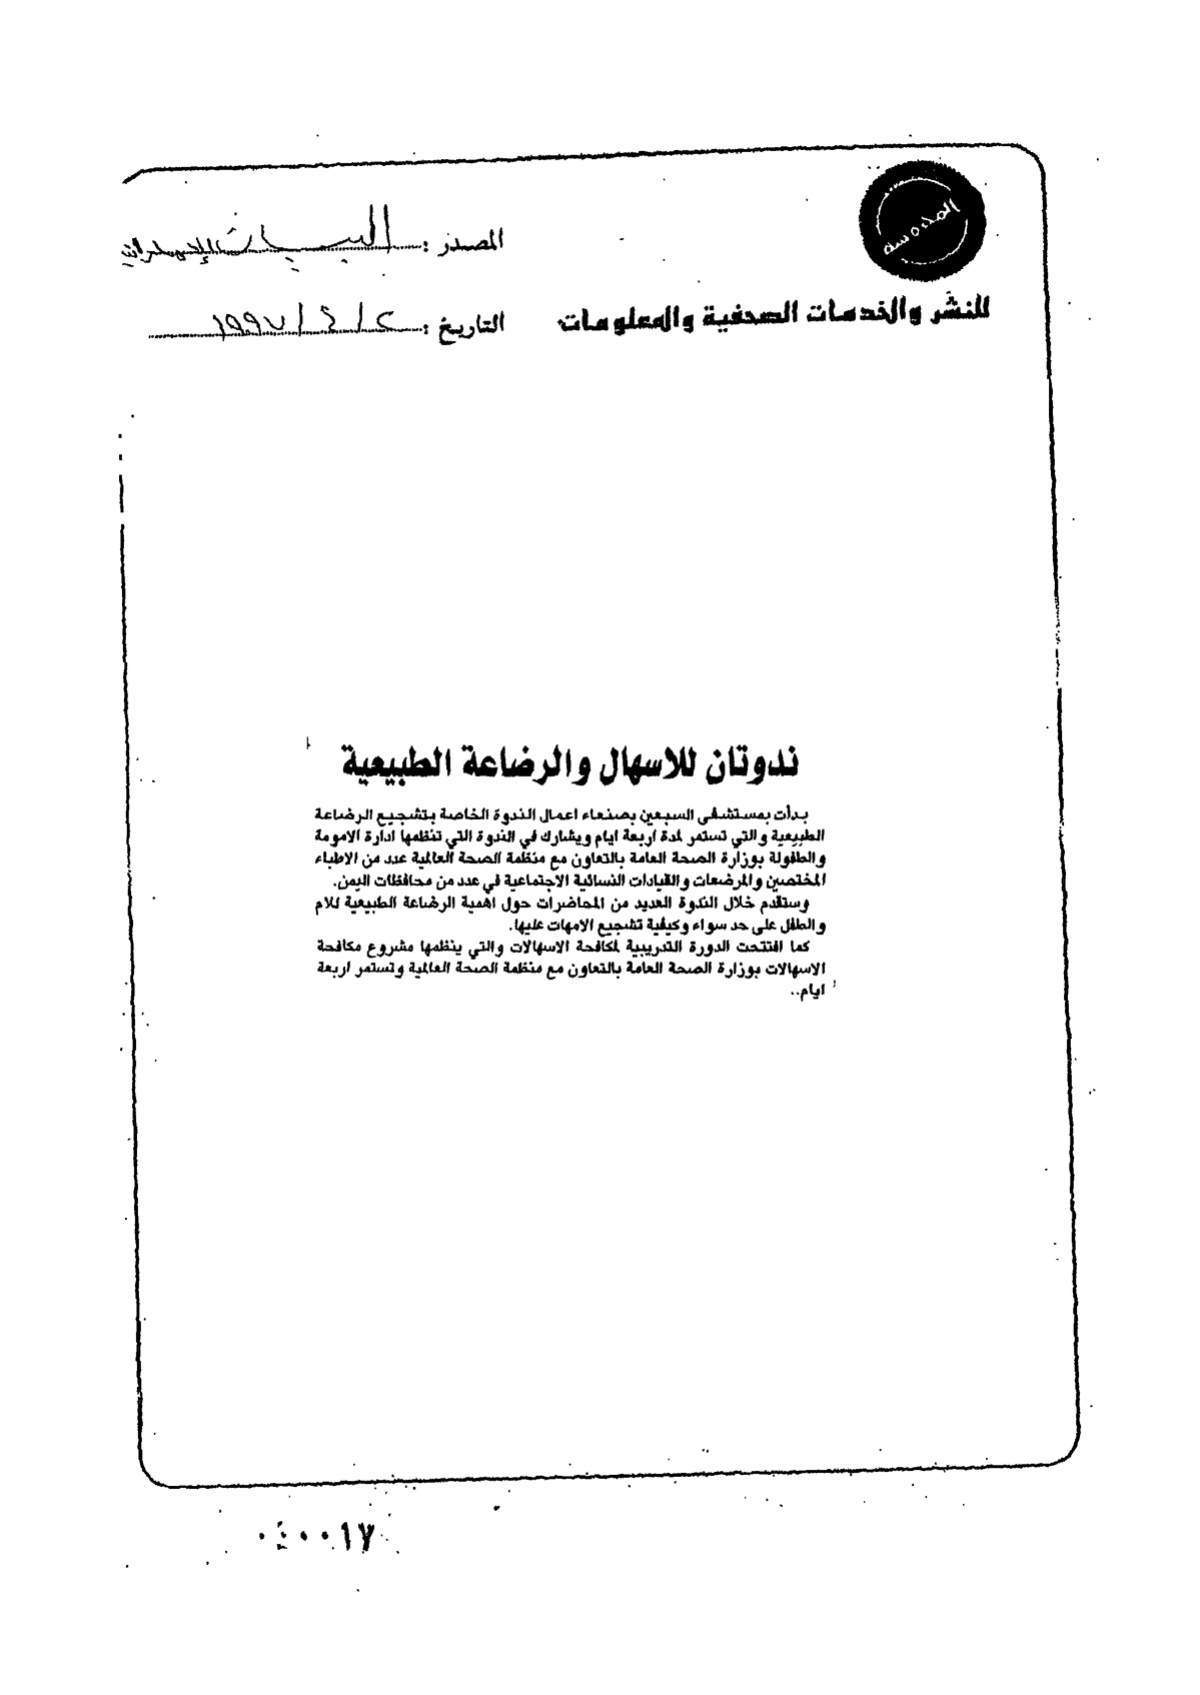 المصدر : البيان الإماراتية
للنشر والخدمات الصحفية والمعلومات
التاريخ : ٢ / ٤ / ١٩٩٧
ندوتان للاسهال والرضاعة الطبيعية
بدأت بمستشفى السبعين بصنعاء اعمال الندوة الخاصة بتشجيع الرضاعة
الطبيعية والتي تستمر لمدة اربعة ايام ويشارك في الندوة التي تنظمها ادارة الامومة
والطفولة بوزارة الصحة العامة بالتعاون مع منظمة الصحة العالمية عدد من الاطباء
المختصين والمرضعات والقيادات النسائية الاجتماعية في عدد من محافظات اليمن.
وستقدم خلال الندوة العديد من المحاضرات حول اهمية الرضاعة الطبيعية للام
والطفل على حد سواء وكيفية تشجيع الامهات عليها.
كما افتتحت الدورة التدريبية لمكافحة الاسهالات والتي ينظمها مشروع مكافحة
الاسهالات بوزارة الصحة العامة بالتعاون مع منظمة الصحة العالمية وتستمر اربعة
ايام..